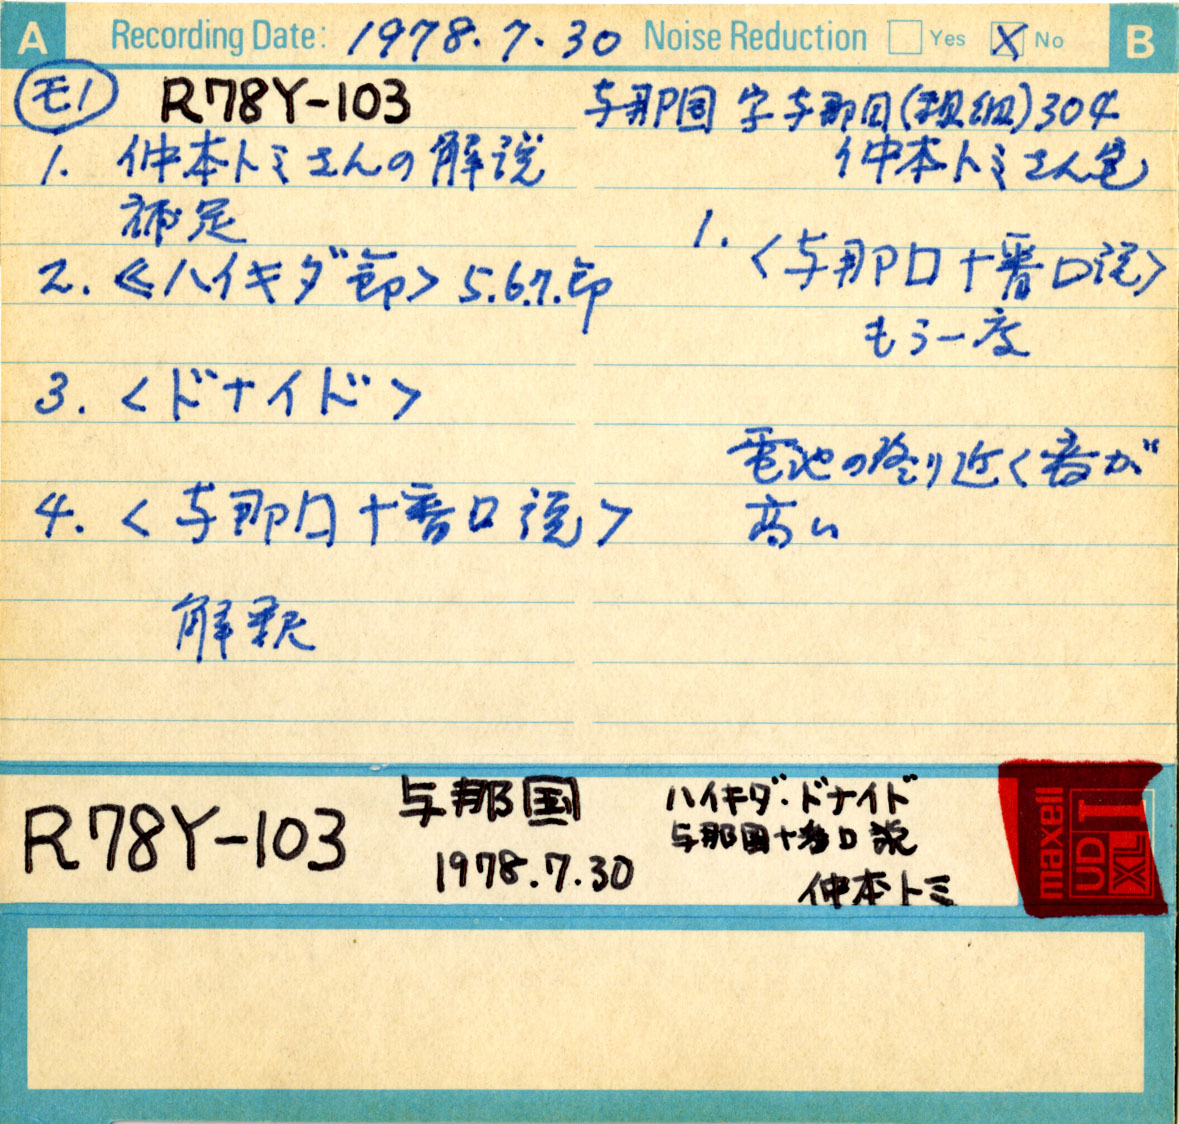 A Recording Date: 1978.7.30 Noise Reduction Yes X No B
モノ R78Y-103
1. 仲本トミさんの解説
補足
2. 《ハイキダ節> 5.6.7.節
3. <ドナイド>
4. <与那国十番口説>
解釈
与那国 字与那国 304
仲本トミさん宅
1. <与那国十番口説>
もう一度
電池の終り近く音が
高い
R78Y-103
与那国
1978.7.30
ハイキダ・ドナイド
与那国十番口説
仲本トミ
maxell
UD
XL I